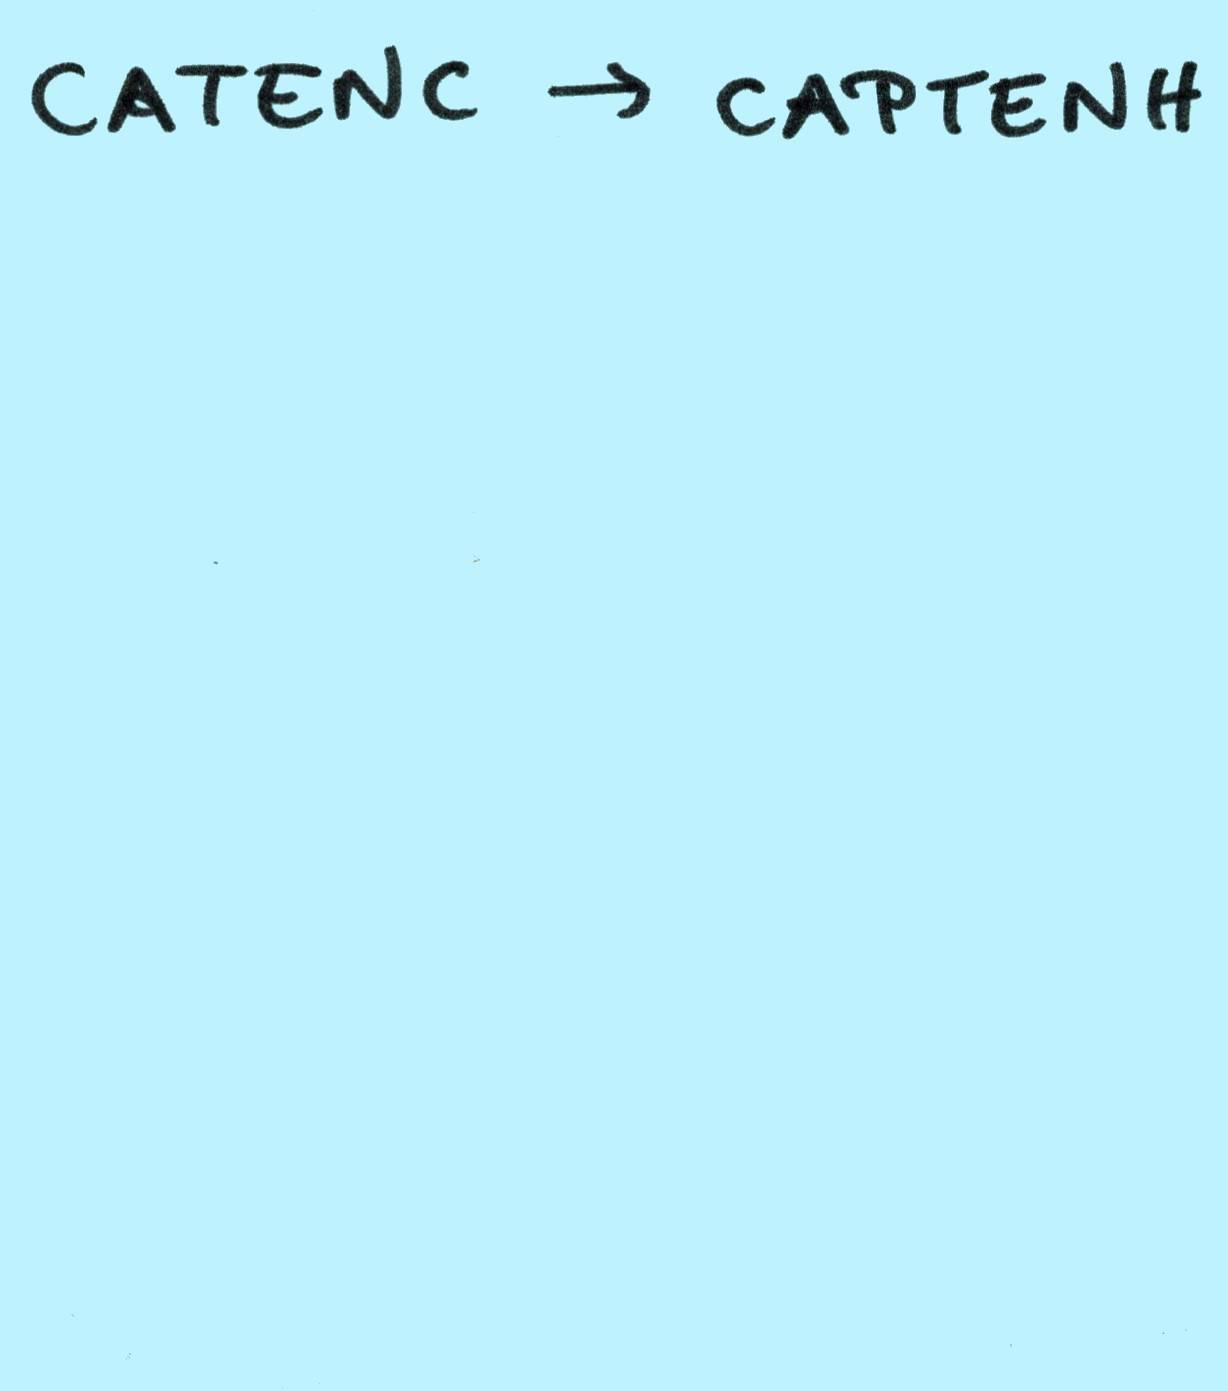 CATENC → CAPTENH